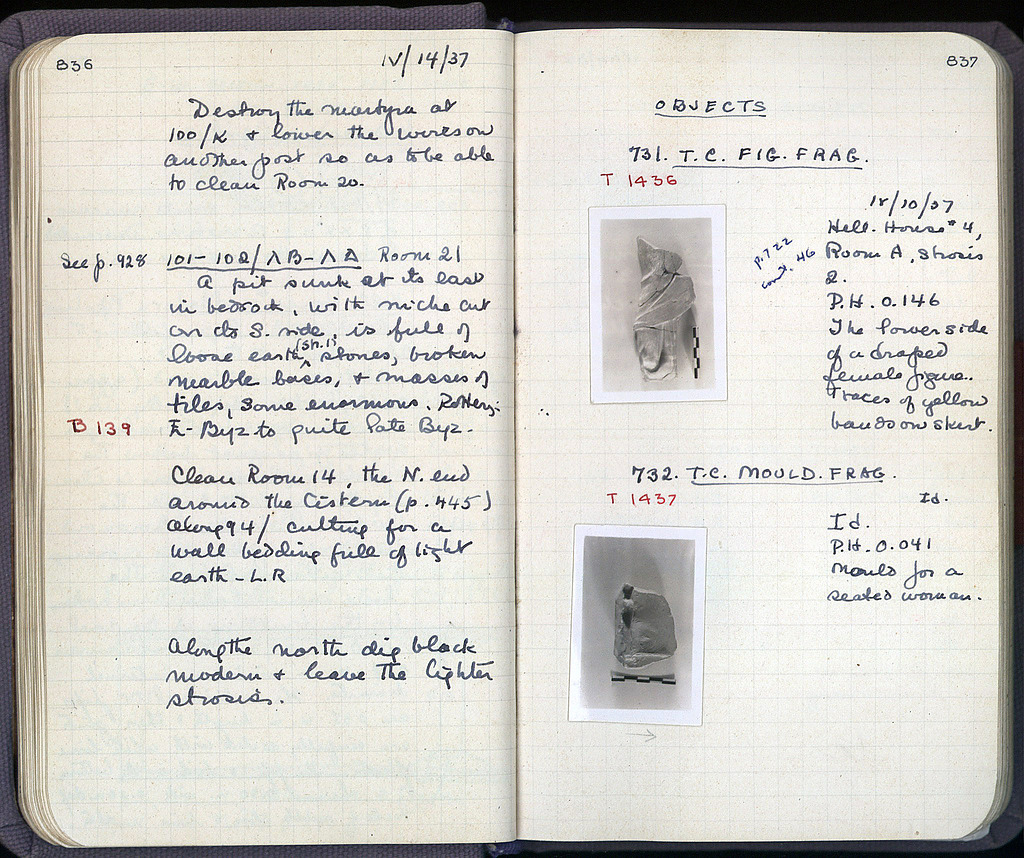 836
IV/14/37
Destroy the martyra at
100/K & lower the wires on
another post so as to be able
to clean Room 20.
See p. 928
101-102/ΛB-ΛΔ Room 21
A pit sunk at its east
in bedrock, with niche cut
on its S. side, is full of
loose earth, (sh. 1) stones, broken
marble bases, & masses of
tiles, some enormous. Pottery:
B 139
E-Byz to quite late Byz.
Clean Room 14, the N. end
around the Cistern (p. 445)
along 94/ cutting for a
wall bedding full of light
earth - L.R
Along the north dig black
modern & leave the lighter
strosis.
837
OBJECTS
731. T.C. FIG. FRAG.
T 1436
IV/10/37
Hell. House #4,
Room A, Strosis
2.
p. 722
cont. 46
P.H. 0.146
The lower side
of a draped
female figure.
Traces of yellow
bands on skirt.
732. T.C. MOULD. FRAG.
T 1437
Id.
Id.
P.H. 0.041
Mould for a
seated woman.